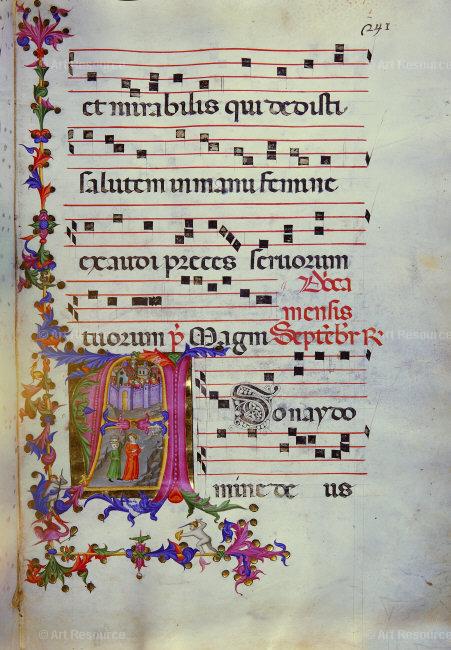 241
et mirabilis qui dedisti
salutem in manu femine
exaudi preces seruorum
mensis
tuorum p̄ Magn Septēbr R
A Donay do
mine de us
© Art Resource